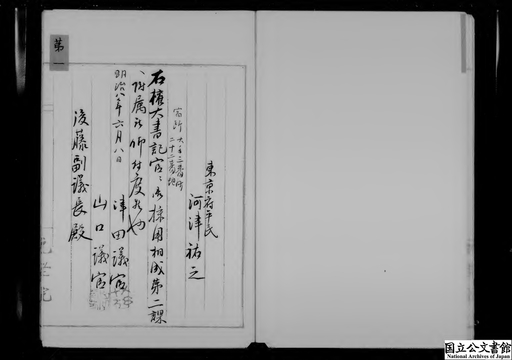 第一
東京府平民
河津祐之
右権大書記官ニ御採用相成第二課
附属被仰付度候也
明治八年六月八日
津田議官
山口議官
後藤副議長殿
国立公文書館
National Archives of Japan